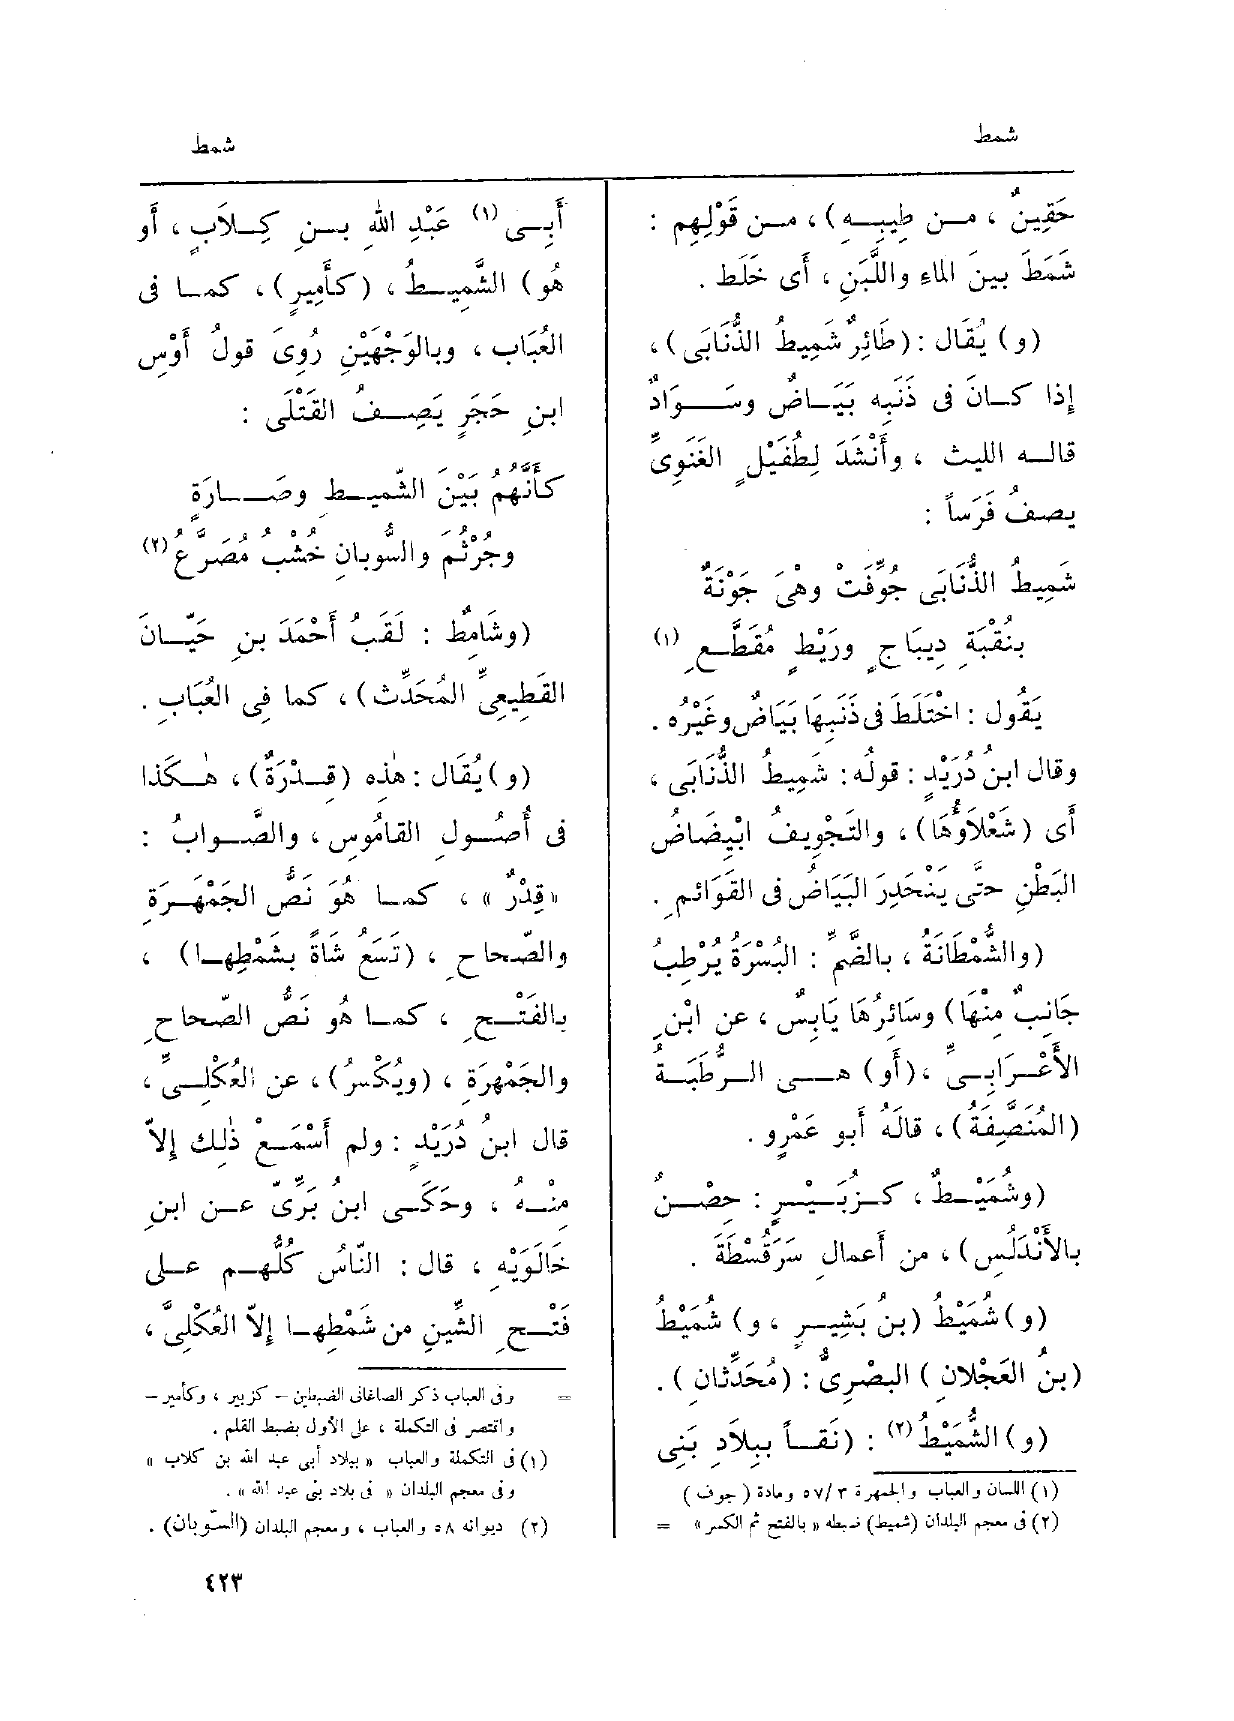 شمط
شمط
حَقِينٌ ، مـن طِيبِـه) ، مـن قَوْلِهِم :
شَمَطَ بينَ الماءِ واللَّبَنِ ، أَى خَلَط .
(و) يُقَال : (طَائِرٌ شَمِيطُ الذُّنَابَى) ،
إِذا كـانَ فى ذَنَبِه بَيَـاضٌ وسَـوَادٌ
قالـه الليث ، وأَنْشَدَ لِطُفَيْلٍ الغَنَوِىِّ
يصفُ فَرَساً :
شَمِيطُ الذُّنَابَى جُوِّفَتْ وهْىَ جَوْنَةٌ
بنُقْبَةِ دِيبَاجٍ ورَيْطٍ مُقَطَّـعِ (١)
يَقُول : اخْتَلَطَ فى ذَنَبِهَا بَيَاضٌ وغَيْرُه .
وقال ابنُ دُرَيْدٍ : قولُه : شَمِيطُ الذُّنَابَى ،
أَى (شَعْلاَوُهَا) ، والتَجْوِيفُ ابْيِضَاضُ
البَطْنِ حتَّى يَنْحَدِرَ البَيَاضُ فى القَوَائمِ .
(والشُّمْطَانَةُ ، بالضَّمِّ : البُسْرَةُ يُرْطِبُ
جَانِبٌ مِنْهَا) وسَائِرُهَا يَابِسٌ ، عن ابْنِ
الأَعْـرَابِـىِّ ، (أَو) هـى الـرُّطَبَـةُ
(المُنَصِّفَةُ) ، قالَهُ أَبو عَمْرٍو .
(وشُمَيْـطٌ ، كـزُبَـيْـرٍ : حِصْـنٌ
بالأَنْدَلُسِ) ، من أَعمالِ سَرَقُسْطَةَ .
(و) شُمَيْطُ (بنُ بَشِيـرٍ ، و) شُمَيْطُ
(بنُ العَجْلانِ) البَصْرِىُّ : (مُحَدِّثانِ) .
(و) الشُّمَيْطُ (٢) : (نَقـاً ببِلاَدِ بَنِى
(١) اللسان والعباب والجمهرة ٣/ ٥٧ ومادة (جوف)
(٢) فى معجم البلدان (شميط) ضبطه « بالفتح ثم الكسر » =
أَبِـى (١) عَبْدِ اللهِ بـنِ كِـلاَبٍ ، أَو
هُو) الشَّمِيـطُ ، (كأَمِيرٍ) ، كمـا فى
العُبَاب ، وبالوَجْهَيْنِ رُوِىَ قولُ أَوْسِ
ابنِ حَجَرٍ يَصِـفُ القَتْلَى :
كأَنَّهُمُ بَيْنَ الشَّمِيـطِ وصَـارَةٍ
وجُرْثُمَ والسُّوبانِ خُشْبٌ مُصَرَّعُ (٢)
(وشَامِطٌ : لَقَبُ أَحْمَدَ بنِ حَيَّـانَ
القَطِيعِىِّ المُحَدِّث) ، كما فِى العُبَابِ .
(و) يُقَال : هٰذه (قـدْرَةٌ) ، هٰـكَذا
فى أُصُـولِ القامُوس ، والصَّـوابُ :
« قِدْرٌ » ، كمـا هُوَ نَصُّ الجَمْهَـرَةِ
والصّحاحِ ، (تَسَعُ شاةً بشَمْطِهـا) ،
بالفَتْـحِ ، كمـا هُو نَصُّ الصّحاحِ
والجَمْهَرَةِ ، (ويُكْسَرُ) ، عن العُكْلِـىِّ ،
قال ابنُ دُرَيْدٍ : ولم أَسْمَـعْ ذٰلِكَ إِلاَّ
مِنْـهُ ، وحَكَـى ابنُ بَرِّىّ عـن ابنِ
خَالَوَيْهِ ، قال : النّاسُ كُلُّهـم علـى
فَتْـحِ الشِّينِ من شَمْطِهـا إِلاّ العُكْلِىَّ ،
= وفى العباب ذكر الصاغانى الضبطين – كزبير ، وكأمير –
واقتصر فى التكملة ، على الأول بضبط القلم .
(١) فى التكملة والعباب « ببلاد أبى عبد الله بن كلاب »
وفى معجم البلدان « فى بلاد بنى عبد الله » .
(٢) ديوانه ٥٨ والعباب ، ومعجم البلدان (السّوبان) .
٤٢٣